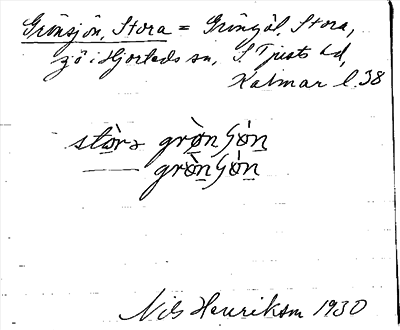 Grönsjön, Stora = Gröngöl, Stora,
sjö i Hjorteds sn, S Tjusts hd,
Kalmar l. 38
stòrɔ grø̀nʃø̀n
—— grø̀nʃø̀n
Nils Henriksson 1930